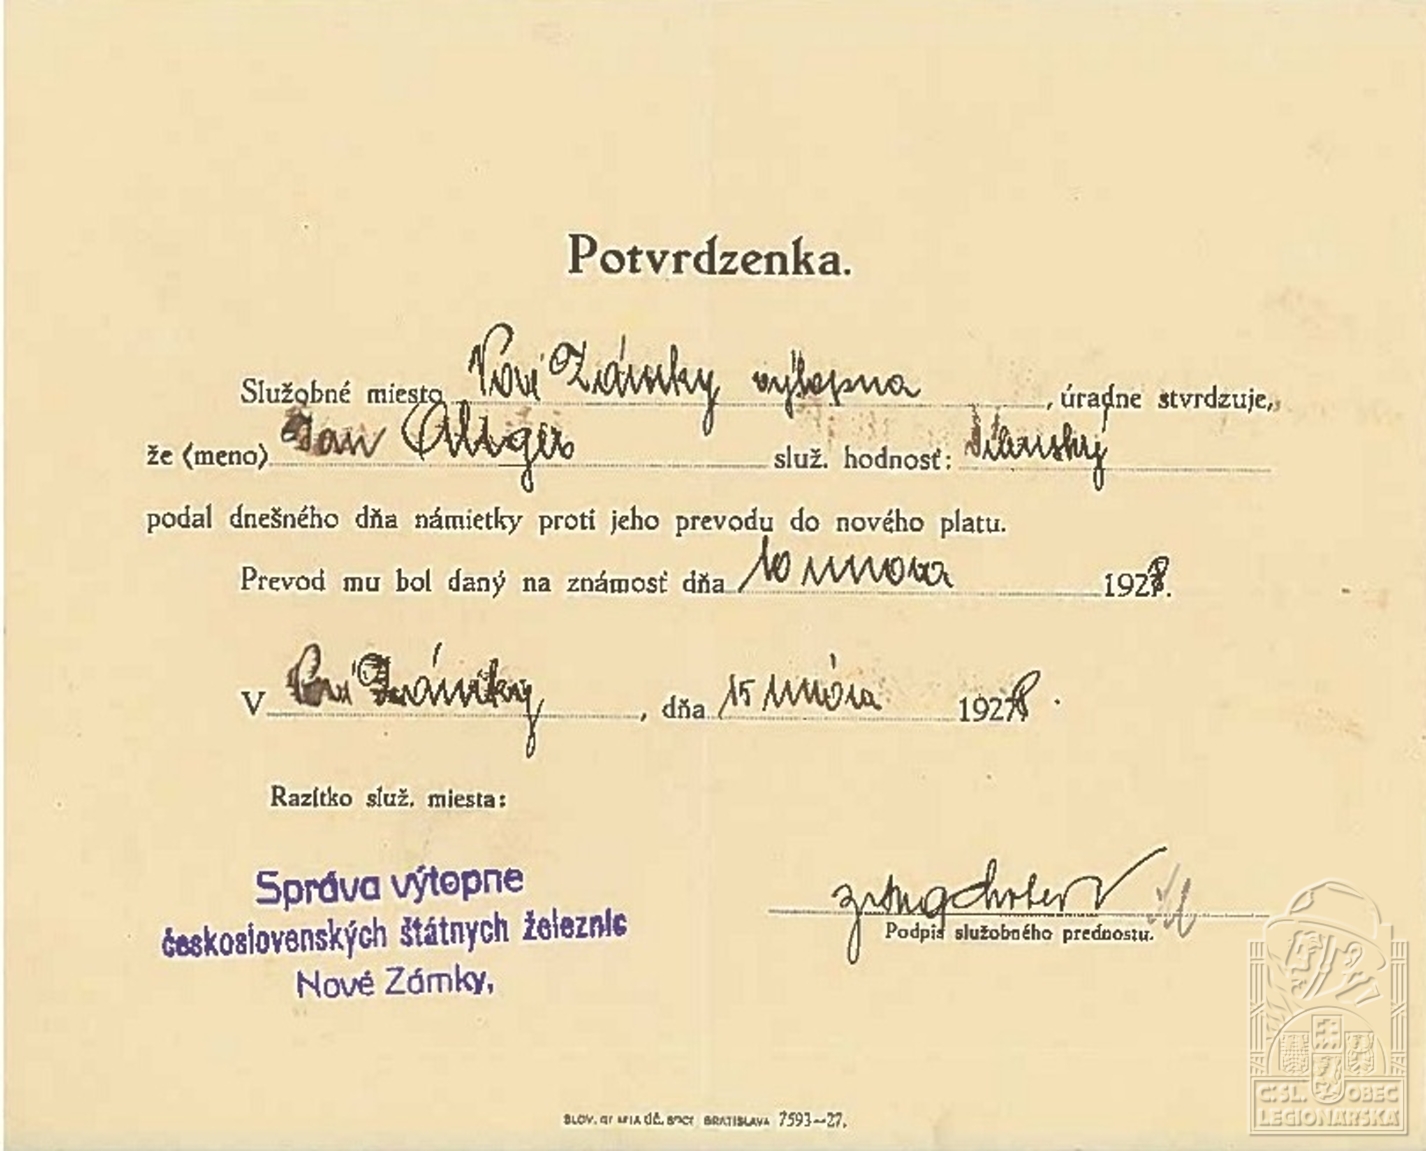 Potvrdzenka.
Služobné miesto Nové Zámky výtopna, úradne stvrdzuje,
že (meno) Jan služ. hodnosť:
podal dnešného dňa námietky proti jeho prevodu do nového platu.
Prevod mu bol daný na známosť dňa 10 února 1928.
V Nové Zámky, dňa 15 února 1928.
Razítko služ. miesta:
Správa výtopne
československých štátnych železnic
Nové Zámky,
Podpis služobného prednostu.
BRATISLAVA 7593—27.
Č.SL. OBEC
LEGIONÁŘSKÁ